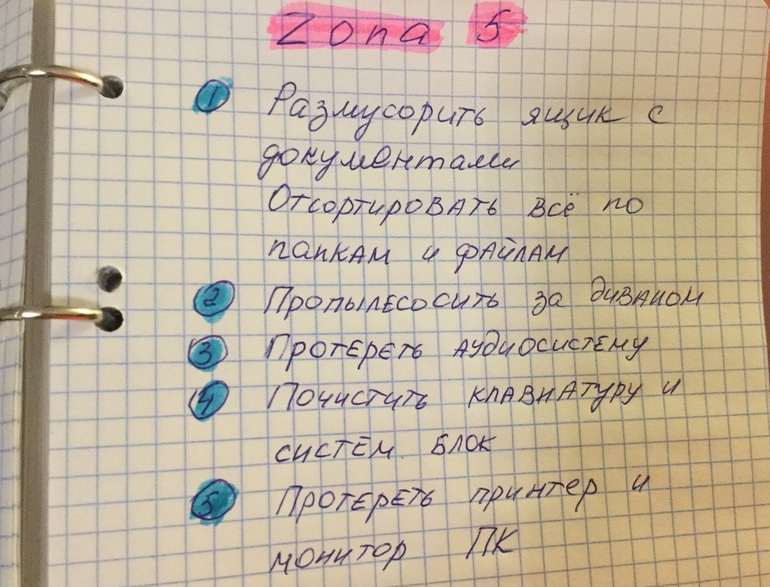 Zona 5
1 Размусорить ящик с
документами
Отсортировать всё по
папкам и файлам
2 Пропылесосить за диваном
3 Протереть аудиосистему
4 Почистить клавиатуру и
систем. блок
5 Протереть принтер и
монитор ПК